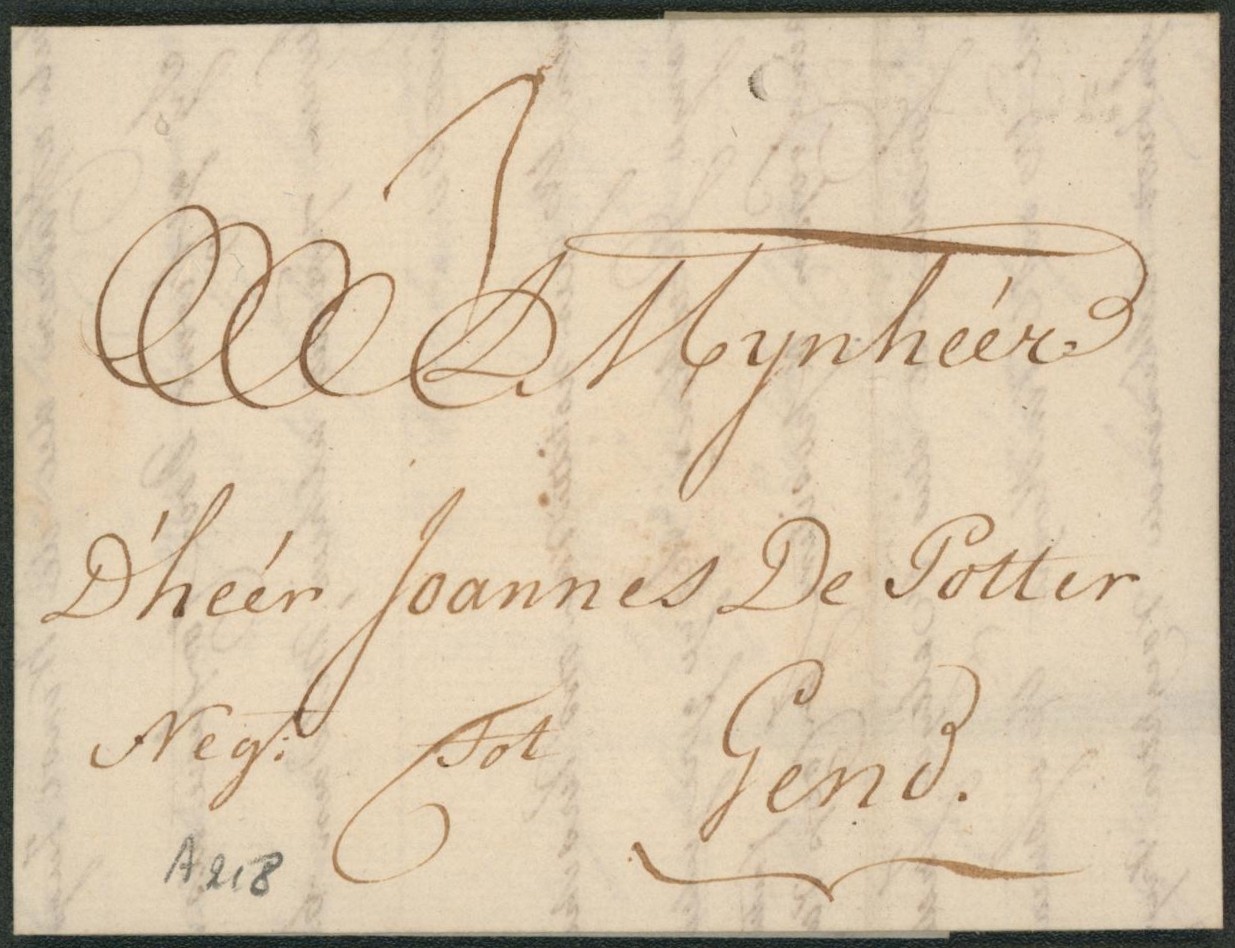 Mynheér
D'heér Joannes De Potter
Neg: Tot Gend.
A218